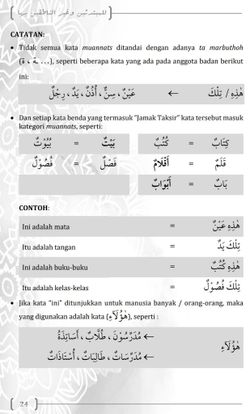 للمبتدئين وغير الناطقين بها
CATATAN:
• Tidak semua kata muannats ditandai dengan adanya ta marbuthoh
(ة ، ـة ...), seperti beberapa kata yang ada pada anggota badan berikut
ini:
هٰذِهِ / تِلْكَ ← عَيْنٌ ، سِنٌّ ، أُذُنٌ ، يَدٌ ، رِجْلٌ
• Dan setiap kata benda yang termasuk "Jamak Taksir" kata tersebut masuk
kategori muannats, seperti:
كِتَابٌ = كُتُبٌ بَيْتٌ = بُيُوْتٌ
قَلَمٌ = أَقْلَامٌ فَصْلٌ = فُصُوْلٌ
بَابٌ = أَبْوَابٌ
CONTOH:
Ini adalah mata = هٰذِهِ عَيْنٌ
Itu adalah tangan = تِلْكَ يَدٌ
Ini adalah buku-buku = هٰذِهِ كُتُبٌ
Itu adalah kelas-kelas = تِلْكَ فُصُوْلٌ
• Jika kata "ini" ditunjukkan untuk manusia banyak / orang-orang, maka
yang digunakan adalah kata (هٰؤُلَآءِ), seperti :
هٰؤُلَآءِ ← مُدَرِّسُوْنَ ، طُلَّابٌ ، أَسَاتِذَةٌ
← مُدَرِّسَاتٌ ، طَالِبَاتٌ ، أُسْتَاذَاتٌ
24